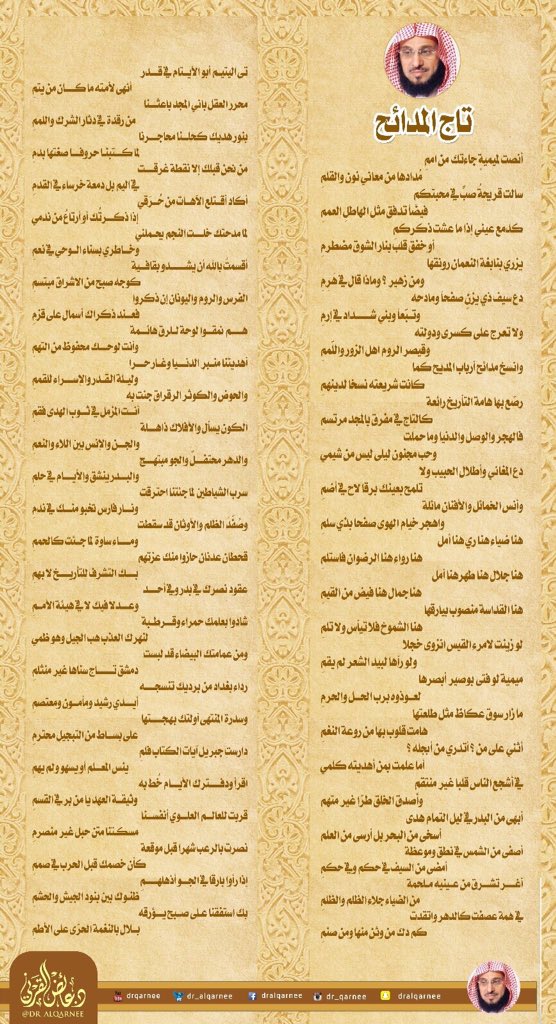 تاج المدائح
أنصت لميمية جاءتك من امم
مُدادها من معاني نون والقلم
سالت قريحة صبٍّ في محبتكم
فيضاً تدفق مثل الهاطل العمم
كدمع عيني إذا ما عشت ذكركم
أو خفق قلب بنار الشوق مضطرم
يزري بنابغة النعمان رونقها
ومن زهير ؟ وماذا قال في هرم
دع سيف ذي يزن صفحا ومادحه
وتبّعاً وبني شداد في إرم
ولا تعرج على كسرى ودولته
وقيصر الروم اهل الزور والنمم
وانسخ مدائح أرباب المديح كما
كانت شريعته نسخا لدينهم
رصّع بها هامة التأريخ رائعة
كالتاج في مفرق بالمجد مرتسم
فالهجر والوصل والدنيا وما حملت
وحب مجنون ليلى ليس من شيمي
دع المغاني وأطلال الحبيب ولا
تلمح بعينك برقا لاح في أضم
وأنس الخمائل والأفنان مائلة
واهجر خيام الهوى صفحا بذي سلم
هنا ضياء هنا ري هنا أمل
هنا رواء هنا الرضوان فاستلم
هنا جلال هنا طهر هنا أمل
هنا جمال هنا فيض من القيم
هنا القداسة منصوب بيارقها
هنا الشموخ فلا تيأس ولا تلم
لو زينت لامرء القيس انزوى خجلا
ولو رأها لبيد الشعر لم يقم
ميمية لو فتى بوصير أبصرها
لعوذوه برب الحل والحرم
ما زار سوق عكاظ مثل طلعتها
هامت قلوب بها من روعة النغم
أثني على من ؟ أتدري من أبجله ؟
أما علمت بمن أهديته كلمي
في أشجع الناس قلبا غير منتقم
وأصدق الخلق طرّا غير متهم
أبهى من البدر في ليل التمام هدى
أسخى من البحر بل أرسى من العلم
أصفى من الشمس في نطق وموعظة
أمضى من السيف في حكم وفي حكم
أغر تشرق من عينيه ملحمة
من الضياء جلاء الظلم والظلم
في همة عصفت كالدهر واتقدت
كم دك من وثن منها ومن صنم
تى اليتيم أبو الأيتام في قدر
أنهى لأمته ما كان من يتم
محرر العقل باني المجد باعثنا
من رقدة في دثار الشرك واللمم
بنور هديك كحلنا محاجرنا
لما كتبنا حروفا صغتها بدم
من نحن قبلك إلا نقطة غرقت
في اليم بل دمعة خرساء في القدم
أكاد أقتلع الآهات من حُرَقي
إذا ذكرتُك أو أرتاعُ من ندمي
لما مدحتك خلت النجم يحملني
وخاطري بسناء الوحي في نعم
أقسمت بالله أن يشدو بقافية
كوجه صبح من الاشراق مبتسم
الفرس والروم واليونان إن ذكروا
فعند ذكراك أسمال على قزم
هم نمقوا لوحة للرق هائمة
وانت لوحك محفوظ من التهم
أهديتنا منبر الدنيا وغار حرا
وليلة القدر والاسراء للقمم
والحوض والكوثر الرقراق جئت به
أنت المزمل في ثوب الهدى فقم
الكون يسأل والأفلاك ذاهلة
والجن والإنس بين اللاء والنعم
والدهر محتفلٌ والجو مبتهج
والبدر ينشق والأيام في حلم
سرب الشياطين لما جئتنا احترقت
ونار فارس تخبو منك في ندم
وصُفّد الظلم والأوثان قد سقطت
وماء ساوة لما جئت كالحمم
قحطان عدنان حازوا منك عزتهم
بك التشرف للتأريخ لا بهم
عقود نصرك في بدر وفي أحد
وعدلا فيك لا في هيئة الأمم
شادوا بعلمك حمراء وقرطبة
لنهرك العذب هب الجيل وهو ظمي
ومن عمامتك البيضاء قد لبست
دمشق تاج سناها غير منثلم
رداء بغداد من برديك تنسجه
أيدي رشيد ومأمون ومعتصم
وسدرة المنتهى أولتك بهجتها
على بساط من التبجيل محترم
دارست جبريل آيات الكتاب فلم
ينس المعلم أو يسهو ولم يهم
اقرأ ودفترك الأيام خُط به
وثيقة العهد يا من بر في القسم
قربت للعالم العلوي أنفسنا
مسكتنا متن حبل غير منصرم
نصرت بالرعب شهرا قبل موقعة
كأن خصمك قبل الحرب في صمم
إذا رأوا بارقا في الجو أذهلهم
ظنوك بين بنود الجيش والحشم
بك استفقنا على صبح يؤرقه
بلال بالنغمة الحرّى على الأطم
د. عائض القرني
@DR ALQARNEE
drqarnee
dr_alqarnee
dralqarnee
dr_qarnee
dralqarnee